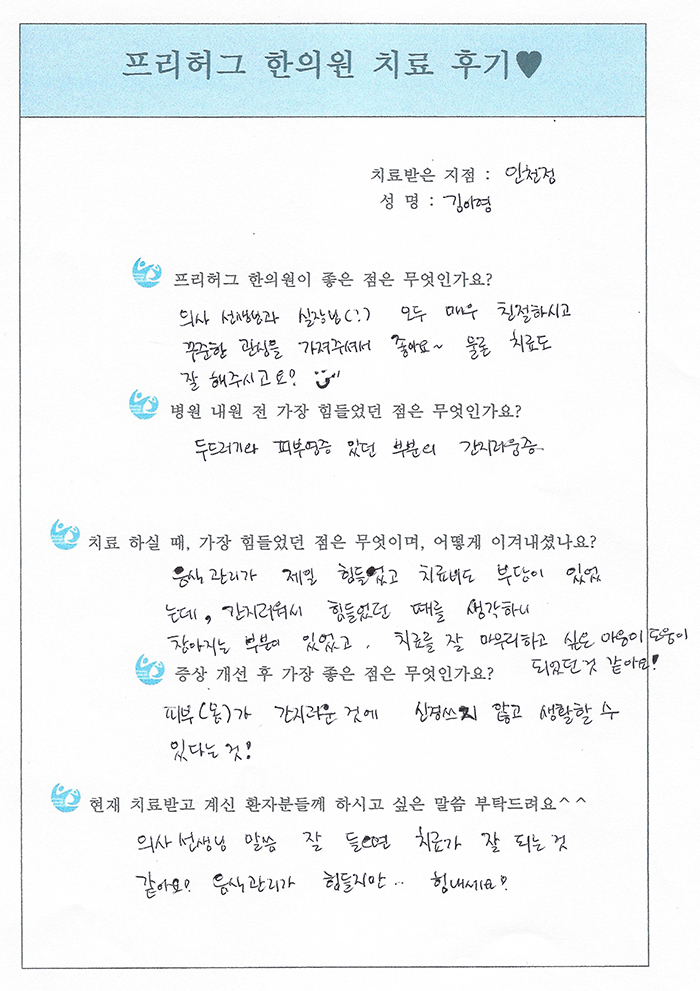 프리허그 한의원 치료 후기♥
치료받은 지점 : 인천점
성 명 : 김아영
프리허그 한의원이 좋은 점은 무엇인가요?
의사 선생님과 실장님(?) 모두 매우 친절하시고
꾸준한 관심을 가져주셔서 좋아요~ 물론 치료도
잘 해주시고요?
병원 내원 전 가장 힘들었던 점은 무엇인가요?
두드러기와 피부염증 났던 부분의 간지러움증.
치료 하실 때, 가장 힘들었던 점은 무엇이며, 어떻게 이겨내셨나요?
음식 관리가 제일 힘들었고 치료비도 부담이 있었
는데, 간지러워서 힘들었던 때를 생각하니
참아지는 부분이 있었고, 치료를 잘 마무리하고 싶은 마음이 도움이
되었던 것 같아요!
증상 개선 후 가장 좋은 점은 무엇인가요?
피부(몸)가 간지러운 것에 신경쓰지 않고 생활할 수
있다는 것!
현재 치료받고 계신 환자분들께 하시고 싶은 말씀 부탁드려요^^
의사 선생님 말씀 잘 들으면 치료가 잘 되는 것
같아요? 음식관리가 힘들지만.. 힘내세요?